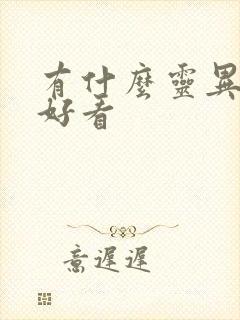 有什麼靈異
好看
意遲遲